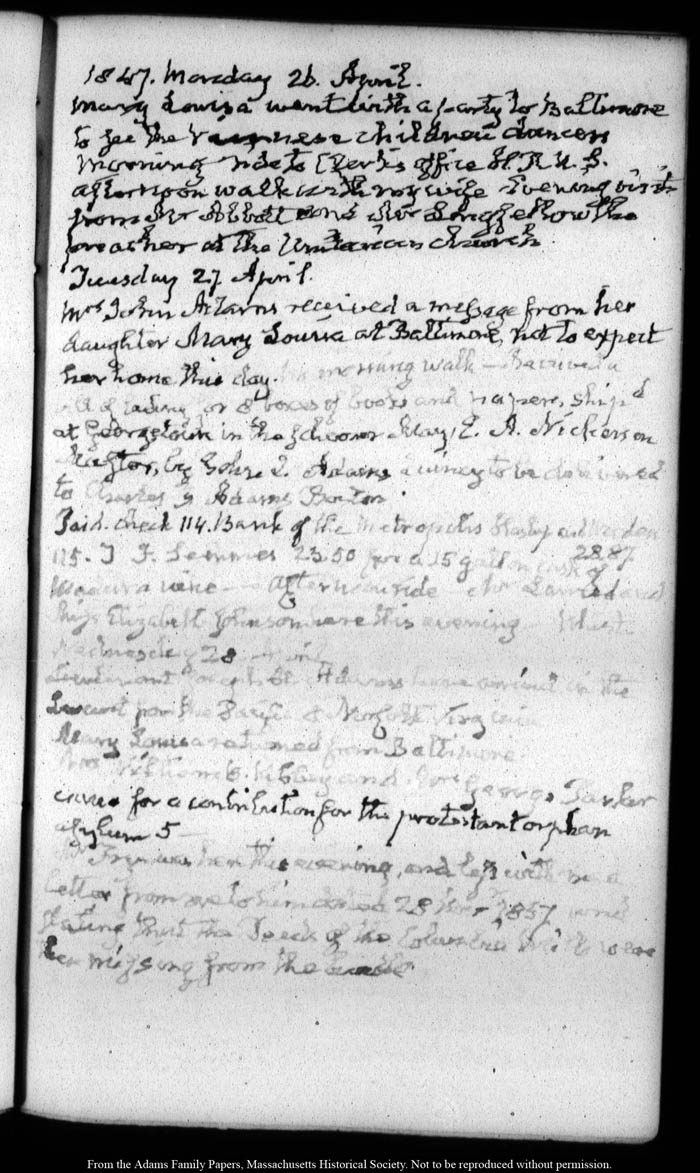 1847. Monday 26. April.
Mary Louisa went with a party to Baltimore
to see the Viennese children dancers
Morning ride to Clerk's office H. R. U. S.
afternoon walk with my wife Evening visit
from Mr Abbot and Mr Longfellow the
preacher at the Unitarian Church
Tuesday 27. April.
Mrs John Adams received a message from her
daughter Mary Louisa at Baltimore, not to expect
her home this day. morning walk — Received a
bill of lading for 8 boxes of books and papers, ship'd
at Georgetown in the Schooner Mary, E. A. Nickerson
Master, by John Q. Adams Quincy to be delivered
to Charles F Adams Boston.
Paid. check 114. Bank of the Metropolis and Worden
28.87
115. J F. Semmes 23.50 for a 15 gallon cask of
Madeira wine — afternoon ride — Mr and
Miss Elizabeth Johnson here this evening Whist
Wednesday 28 April
Lieutenant Joseph H. Adams in the
for the Pacific Norfolk Virginia
Mary Louisa returned from Baltimore
Mrs William B. Kibbey and Mrs George Parker
came for a contribution for the protestant orphan
asylum 5 —
Mr was here this evening, and left with me a
letter from me to him dated 28
stating that the Deeds of the Columbia were
missing from the